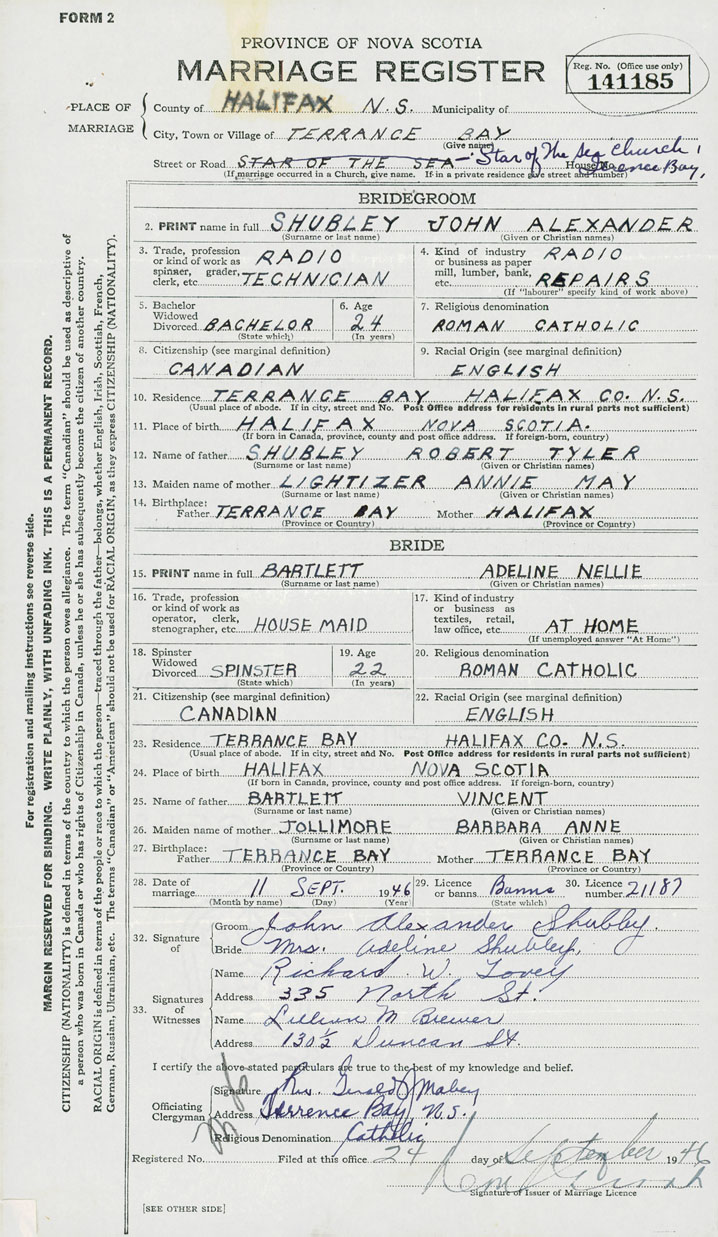 FORM 2
PROVINCE OF NOVA SCOTIA
MARRIAGE REGISTER
Reg. No. (Office use only)
141185
PLACE OF MARRIAGE
County of HALIFAX N.S. Municipality of
City, Town or Village of TERRANCE BAY
(Give name)
Street or Road STAR OF THE SEA - Star of The Sea Church, House No. Terence Bay,
(If marriage occurred in a Church, give name. If in a private residence give street and number)
BRIDEGROOM
2. PRINT name in full SHUBLEY JOHN ALEXANDER
(Surname or last name) (Given or Christian names)
3. Trade, profession or kind of work as spinner, grader, clerk, etc. RADIO TECHNICIAN
4. Kind of industry or business as paper mill, lumber, bank, etc. RADIO REPAIRS
(If "labourer" specify kind of work above)
5. Bachelor Widowed Divorced BACHELOR
(State which)
6. Age 24
(In years)
7. Religious denomination
ROMAN CATHOLIC
8. Citizenship (see marginal definition)
CANADIAN
9. Racial Origin (see marginal definition)
ENGLISH
10. Residence TERRANCE BAY HALIFAX CO. N.S.
(Usual place of abode. If in city, street and No. Post Office address for residents in rural parts not sufficient)
11. Place of birth HALIFAX NOVA SCOTIA.
(If born in Canada, province, county and post office address. If foreign-born, country)
12. Name of father SHUBLEY ROBERT TYLER
(Surname or last name) (Given or Christian names)
13. Maiden name of mother LIGHTIZER ANNIE MAY
(Surname or last name) (Given or Christian names)
14. Birthplace: Father TERRANCE BAY Mother HALIFAX
(Province or Country) (Province or Country)
BRIDE
15. PRINT name in full BARTLETT ADELINE NELLIE
(Surname or last name) (Given or Christian names)
16. Trade, profession or kind of work as operator, clerk, stenographer, etc. HOUSE MAID
17. Kind of industry or business as textiles, retail, law office, etc. AT HOME
(If unemployed answer "At Home")
18. Spinster Widowed Divorced SPINSTER
(State which)
19. Age 22
(In years)
20. Religious denomination
ROMAN CATHOLIC
21. Citizenship (see marginal definition)
CANADIAN
22. Racial Origin (see marginal definition)
ENGLISH
23. Residence TERRANCE BAY HALIFAX CO. N.S.
(Usual place of abode. If in city, street and No. Post Office address for residents in rural parts not sufficient)
24. Place of birth HALIFAX NOVA SCOTIA
(If born in Canada, province, county and post office address. If foreign-born, country)
25. Name of father BARTLETT VINCENT
(Surname or last name) (Given or Christian names)
26. Maiden name of mother JOLLIMORE BARBARA ANNE
(Surname or last name) (Given or Christian names)
27. Birthplace: Father TERRANCE BAY Mother TERRANCE BAY
(Province or Country) (Province or Country)
28. Date of marriage 11 SEPT. 1946
(Month by name) (Day) (Year)
29. Licence or banns Banns
(State which)
30. Licence number 21187
32. Signature of
Groom John Alexander Shubley.
Bride Mrs. Adeline Shubley,
33. Signatures of Witnesses
Name Richard W. Tovey
Address 335 North St.
Name Lillian M Brewer
Address 130½ Duncan St.
I certify the above-stated particulars are true to the best of my knowledge and belief.
Officiating Clergyman
Signature Rev. Gerald J Mabey
Address Terrence Bay, N.S.
Religious Denomination Catholic
Registered No. Filed at this office 24 day of September 1946
Signature of Issuer of Marriage Licence
[SEE OTHER SIDE]
For registration and mailing instructions see reverse side.
MARGIN RESERVED FOR BINDING. WRITE PLAINLY, WITH UNFADING INK. THIS IS A PERMANENT RECORD.
CITIZENSHIP (NATIONALITY) is defined in terms of the country to which the person owes allegiance. The term "Canadian" should be used as descriptive of
a person who was born in Canada or who has rights of Citizenship in Canada, unless he or she has subsequently become the citizen of another country.
RACIAL ORIGIN is defined in terms of the people or race to which the person—traced through the father—belongs, whether English, Irish, Scottish, French,
German, Russian, Ukrainian, etc. The terms "Canadian" or "American" should not be used for RACIAL ORIGIN, as they express CITIZENSHIP (NATIONALITY).